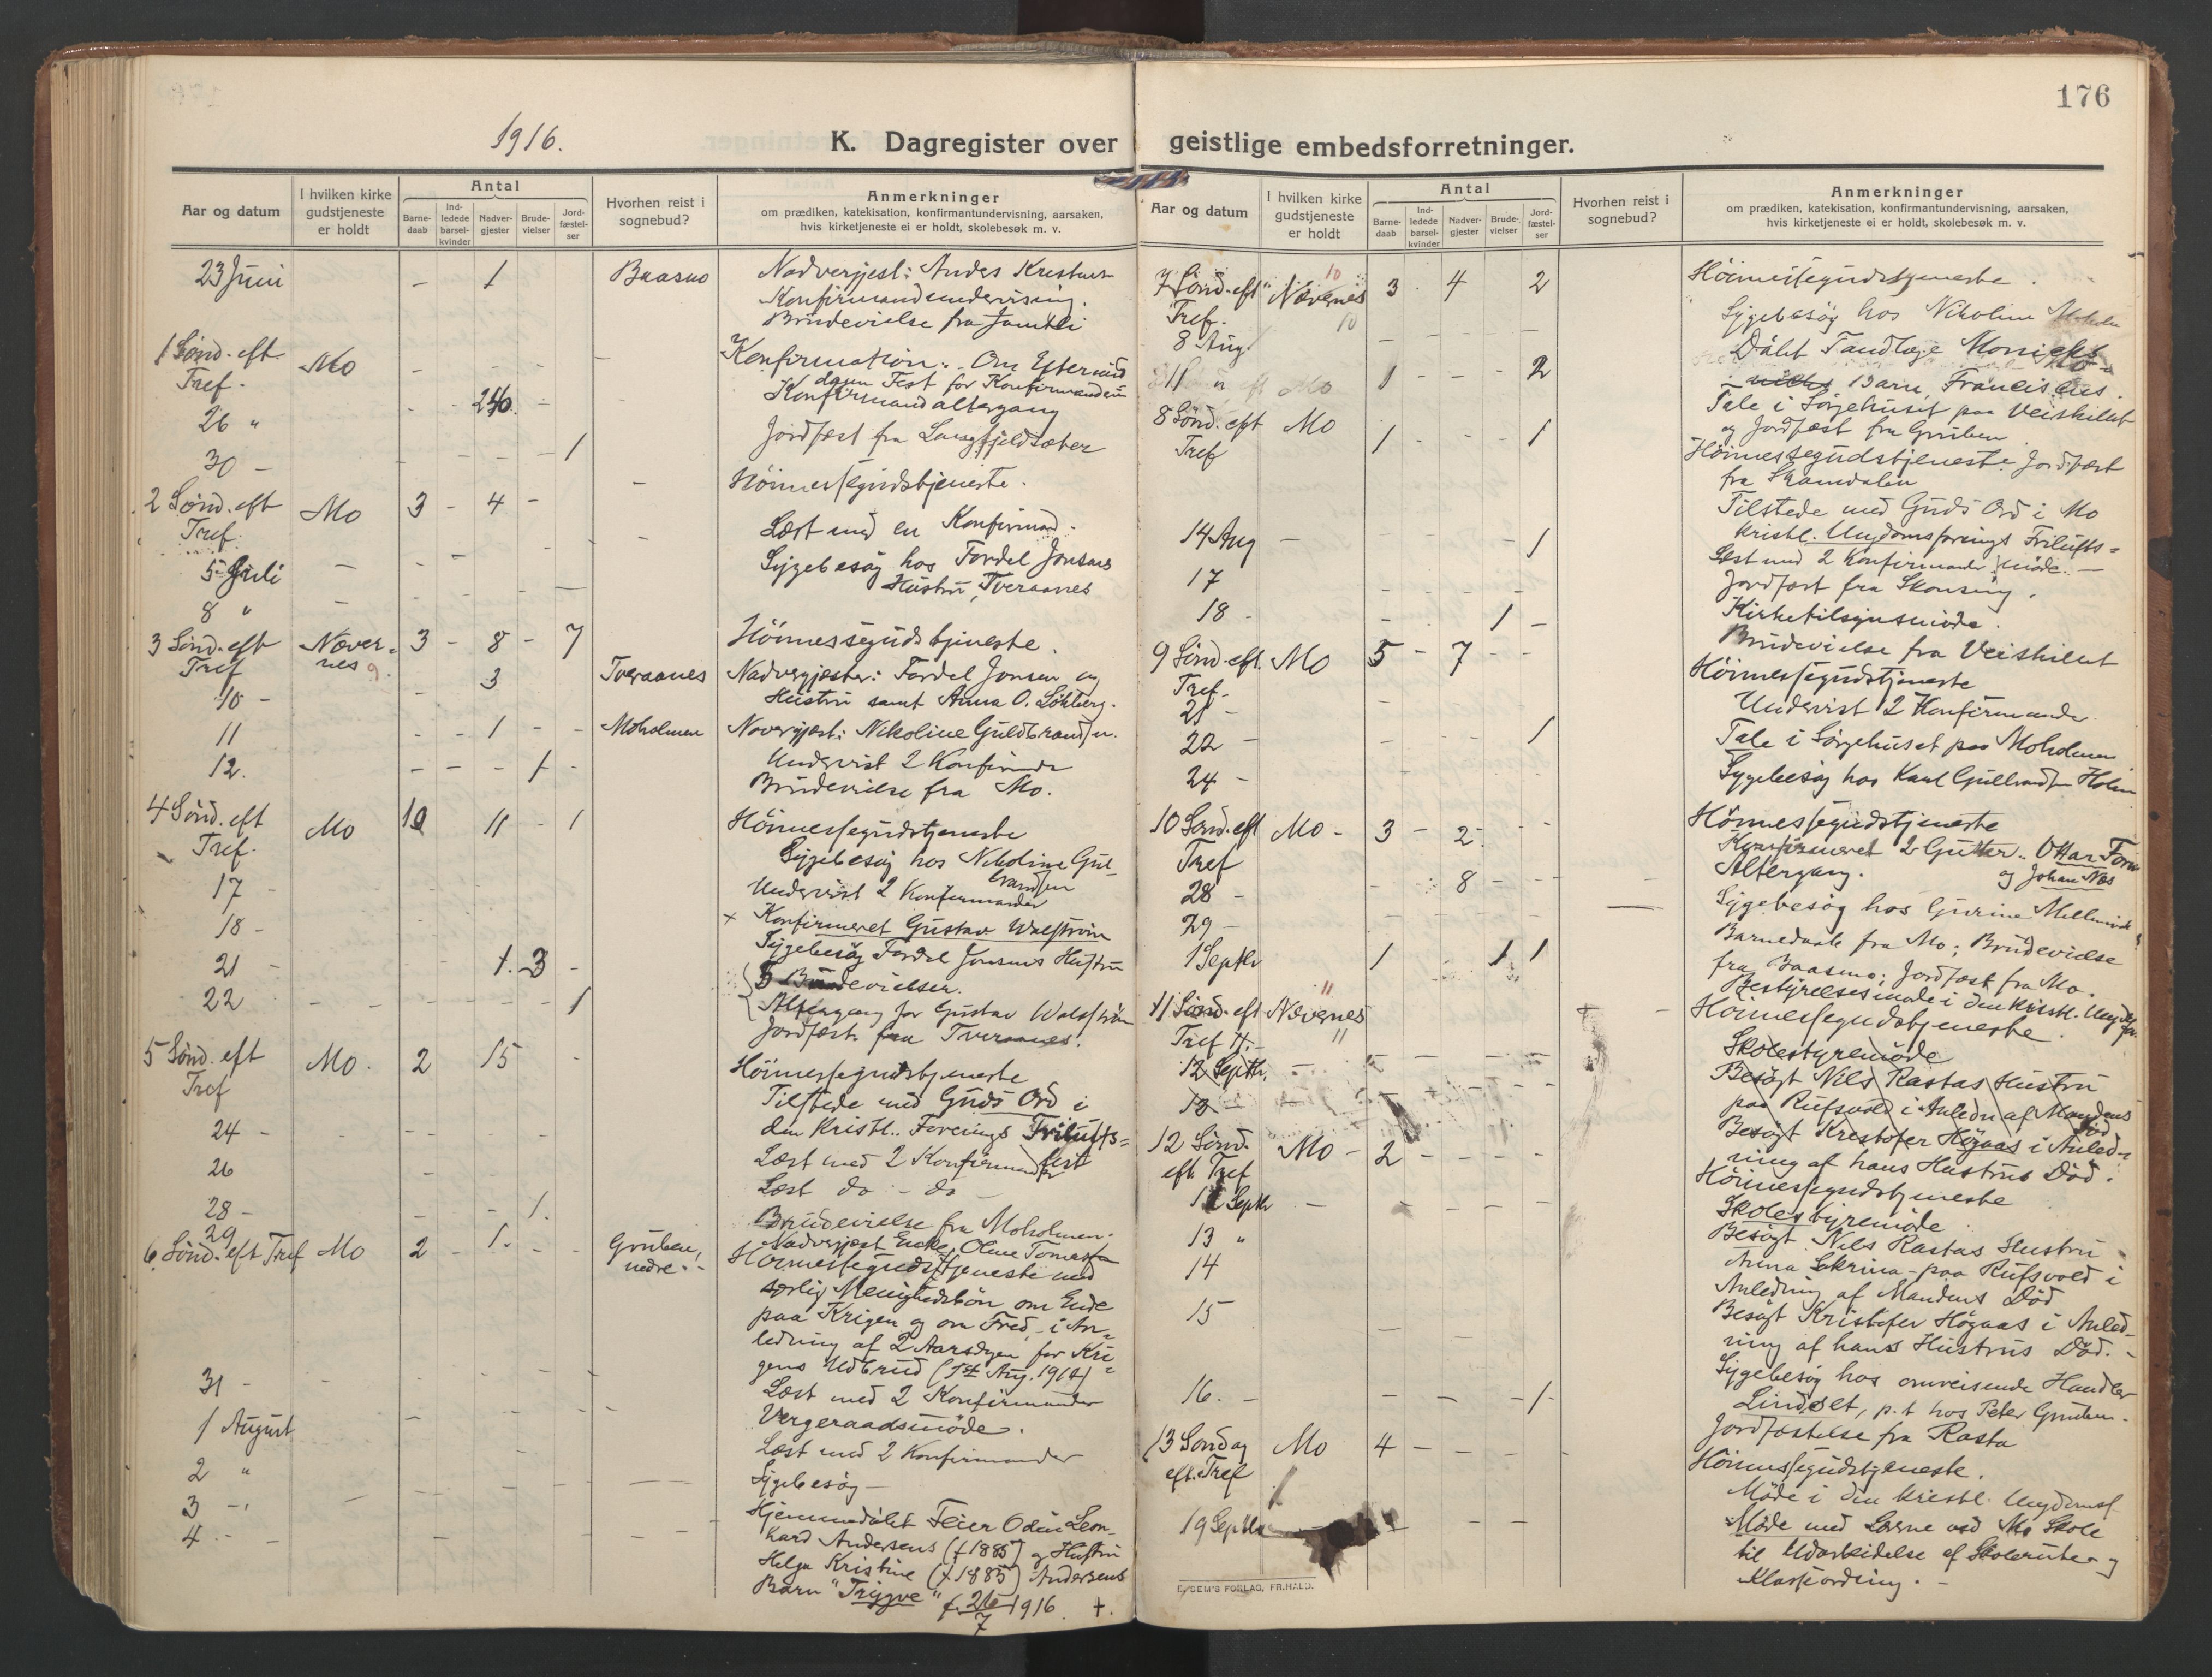 176
1916.
K. Dagregister over geistlige embedsforretninger.
Aar og datum
I hvilken kirke gudstjeneste er holdt
Antal
Barne-daab
Ind-ledede barsel-kvinder
Nadver-gjester
Brude-vielser
Jord-fæstel-ser
Hvorhen reist i sognebud?
Anmerkninger
om prædiken, katekisation, konfirmantundervisning, aarsaken,
hvis kirketjeneste ei er holdt, skolebesøk m. v.
23 Juni - 1 Baasmo Nadvergjest:
Konfirmandundervisning.
Brudevielse fra
1 Sønd. eft Mo - - Konfirmation:
Tref. Fest for Konfirmanderne
26 " - 240 - Konfirmandaltergang
30 - - - - 1 Jordfæst fra Langfjeldsæter
2 Sønd. eft Mo 3 - 4 - - Høimessegudstjeneste.
Tref. Læst med en Konfirmand.
5 Juli - Sygebesøg hos Fordel Jonsens
8 " - Hustru, Tveraanes
3 Sønd. eft Næver= 3 - 8 - 7 Høimessegudstjeneste.
Tref nes 9
10 - - 3 Tveraanes Nadvergjester: Fordel Jonsen og
Hustru samt Anna O. Løkberg.
11 - - 1 - - Moholmen Navergjest: Nikoline Guldbrandsen.
12. - - - 1 - Undervist 2
Brudevielse fra Mo.
4 Sønd. eft Mo 10 11 - 1 Høimessegudstjeneste
Tref. Sygebesøg hos Nikoline Gul-
brandsen
17 - Undervist 2 Konfirmander
18 - × Konfirmeret Gustav Walstrøm
21 - - - 1. 3 - Sygebesøg Fordel Jonsens Hustru
3 Brudevielser.
22 - - - - - 1 Altergang for Gustav Walstrøm
Jordfæst. fra Tveraanes.
5 Sønd. eft Mo. 2 15 - Høimessegudstjeneste
Tref Tilstede med Guds Ord i
24 - den Kristl. Forenings Frilufts=
fest
26 - Læst med 2 Konfirmander
Læst do - do -
28 - - - 1. Brudevielse fra Moholmen.
29 1. - - Gruben, nedre. - Nadvergjest Enke, Oline
6. Sønd. eft Tref Mo 2 Høimessegudstjeneste med
særlig Menighedsbøn om Ende
paa Krigen og om Fred - i An=
ledning af 2 Aarsdagen for Kri=
gens Udbrud (1st Aug. 1914) -
31 - Læst med 2 Konfirmander
1 August Vergeraadsmøde.
2 " Læst med 2 Konfirmander
3 - Sygebesøg -
4 - - Hjemmedøbt Feier Odin Leon-
hard Andersens (f 1885) og Hustru
Helga Kristine (f 1885) Andersens
Barn "Trygve" f. 26/7 1916. +.
Aar og datum
I hvilken kirke gudstjeneste er holdt
Antal
Barne-daab
Ind-ledede barsel-kvinder
Nadver-gjester
Brude-vielser
Jord-fæstel-ser
Hvorhen reist i sognebud?
Anmerkninger
om prædiken, katekisation, konfirmantundervisning, aarsaken,
hvis kirketjeneste ei er holdt, skolebesøk m. v.
7 Sønd. eft Nævernes 10 3 - 4 - 2 Høimessegudstjeneste.
Tref. 10
8 Aug. - - - Sygebesøg hos Nikoline
11 Mo 1 - - - 2 Døbt Tandlæge
Barn, Franciscus.
Tale i Sørgehuset paa Veiskillet
og Jordfæst fra Gruben
8 Sønd. eft Mo 1 - - - 1 Høimessegudstjeneste. Jordfæst
Tref fra Skamdalen
14 Aug - 1 Tilstede med Guds Ord i Mo
kristl. Ungdomsforenings Frilufts=
møde. -
17 Læst med 2 Konfirmander
Jordfæst fra Skonseng.
18 - - 1 - Kirketilsynsmøde.
Brudevielse fra Veiskillet
9 Sønd. eft. Mo 5 - 7 - - Høimessegudstjeneste
Tref.
21 - - Undervist 2 Konfirmander
22 - - - - - 1 Tale i Sørgehuset paa Moholmen
24 - Sygebesøg hos Karl Holm
10 Sønd. eft Mo - 3 - 2 - - Høimessegudstjeneste
Tref Konfirmeret 2 Gutter. Ottar
og Johan Næs
28 - - - 8 - - Altergang.
29 - - Sygebesøg hos Gurine
1 Septbr 1 - 1 1 Barnedaab fra Mo; Brudevielse
fra Baasmo; Jordfæst fra Mo.
Bestyrelsesmøde i den kristl.
11 Sønd. eft Nævernes 11 Høimessegudstjeneste.
Tref 11
12 Septbr. - Skolestyremøde
13 - Besøgt Nils Rastas Hustru
paa Rufsvold i Anledn af Mandens
Død
Besøgt Kristofer Høgaas i Anled-
ning af hans Hustrus Død.
12 Sønd. Mo - 2 - - - - Høimessegudstjeneste
eft Tref
12 Septbr - Skolestyremøde.
13 " Besøgt Nils Rastas Hustru
14 Anna - paa Rufsvold i
Anledning af Mandens Død
15 Besøgt Kristofer Høgaas i Anled-
ning af hans Hustrus Død. -
16. - - - - 1. Sygebesøg hos omreisende Handler
Lindset, p.t hos Peter Gruben.
Jordfæstelse fra Rasta
13 Søndag Mo 4 - - - - Høimessegudstjeneste.
eft. Tref Møde i den kristl.
19 Septbr - - - Møde med Lærerne ved Mo Skole
til Udarbeidelse af Skolerute og
Klasseordning. -
E. SEM'S FORLAG, FR.HALD.